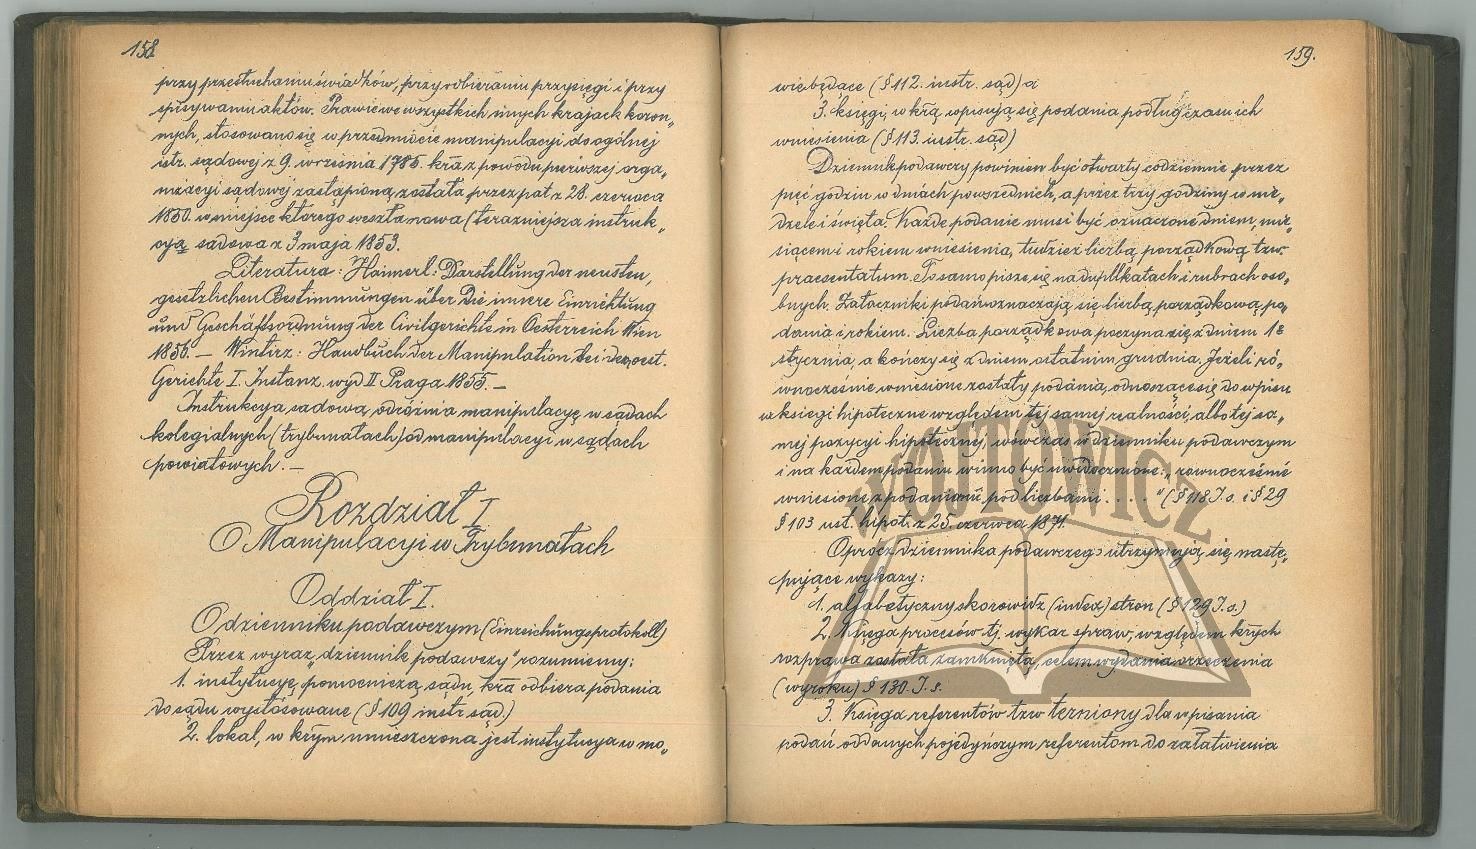 158
przy przesłuchaniu świadków, przy odbieraniu przysięgi i przy
spisywaniu aktów. Prawie we wszystkich innych krajach koron„
nych, stosowano się w przedmiocie manipulacyi do ogólnej
istr. sądowej z 9. września 1785. kŕa z powodu pierwszej orga„
nizacyi sądowej zastąpioną została przez pat. z 28. czerwca
1850. w miejsce którego weszła nowa (teraźniejsza instruk„
cyą sądowa z 3 maja 1853.
Literatura: Haimerl: Darstellung der neusten,
gesetzlichen Bestimmungen über die innere Einrichtung
und Geschäftsordnung der Civilgerichte in Oesterreich Wien
1856. — Wintirz: Handbuch der Manipulation bei den oest.
Gerichte I. Instanz. wyd II Praga 1855. —
Instrukcya sądowa, odróżnia manipulacyę w sądach
kolegialnych (trybunałach) od manipulacyi w sądach
powiatowych. —
Rozdział I
O Manipulacyi w Trybunałach
Oddział I.
O dzienniku podawczym (Einreichungsprotokoll)
Przez wyraz „dziennik podawczy" rozumiemy:
1. instytucyę, pomocniczą sądu, kŕa odbiera podania
do sądu wystósowane (§ 109 instr. sąd.)
2. lokal, w kŕym umieszczona jest instytucya w mo„
159.
wie będące (§ 112. instr. sąd) a
3. księgi, w kŕą wpisują się podania podług czasu ich
wniesienia (§ 113. instr. sąd)
Dziennik podawczy powinien być otwarty codziennie przez
pięć godzin w dniach powszednich, a przez trzy godziny w nie„
dziele i święta. Każde podanie musi być oznaczone dniem, mie„
siącem i rokiem wniesienia, tudzież liczbą porządkową tzw.
praesentatum. To samo pisze się na duplikatach i rubrach oso„
bnych. Załączniki podań oznaczają się liczbą porządkową po„
dania i rokiem. Liczba porządkowa poczyna się z dniem 1º
stycznia, a kończy się z dniem ostatnim grudnia. Jeżeli ró„
wnocześnie wniesione zostały podania, odnoszące się do wpisu
w księgi hipoteczne względem tej samej realności, albo tej sa„
mej pozycyi hipotecznej, wówczas w dzienniku podawczym
i na każdem podaniu winno być uwidocznione: „równocześnie
wniesione z podaniami pod liczbami . . . . " (§ 118 I. s. i § 29
§ 103 ust. hipot. z 25. czerwca 1871.
Oprócz dziennika podawczego utrzymują się nastę„
pujące wykazy:
1. alfabetyczny skorowidz (index) stron (§ 129 I. s.)
2. Księga procesów tj. wykaz spraw, względem kŕych
rozprawa została zamknięta, celem wydania orzeczenia
(wyroku) § 130. I. s.
3. Księga referentów tzw terniony dla wpisania
podań oddanych pojedyńczym referentom do załatwienia
WÓJTOWICZ